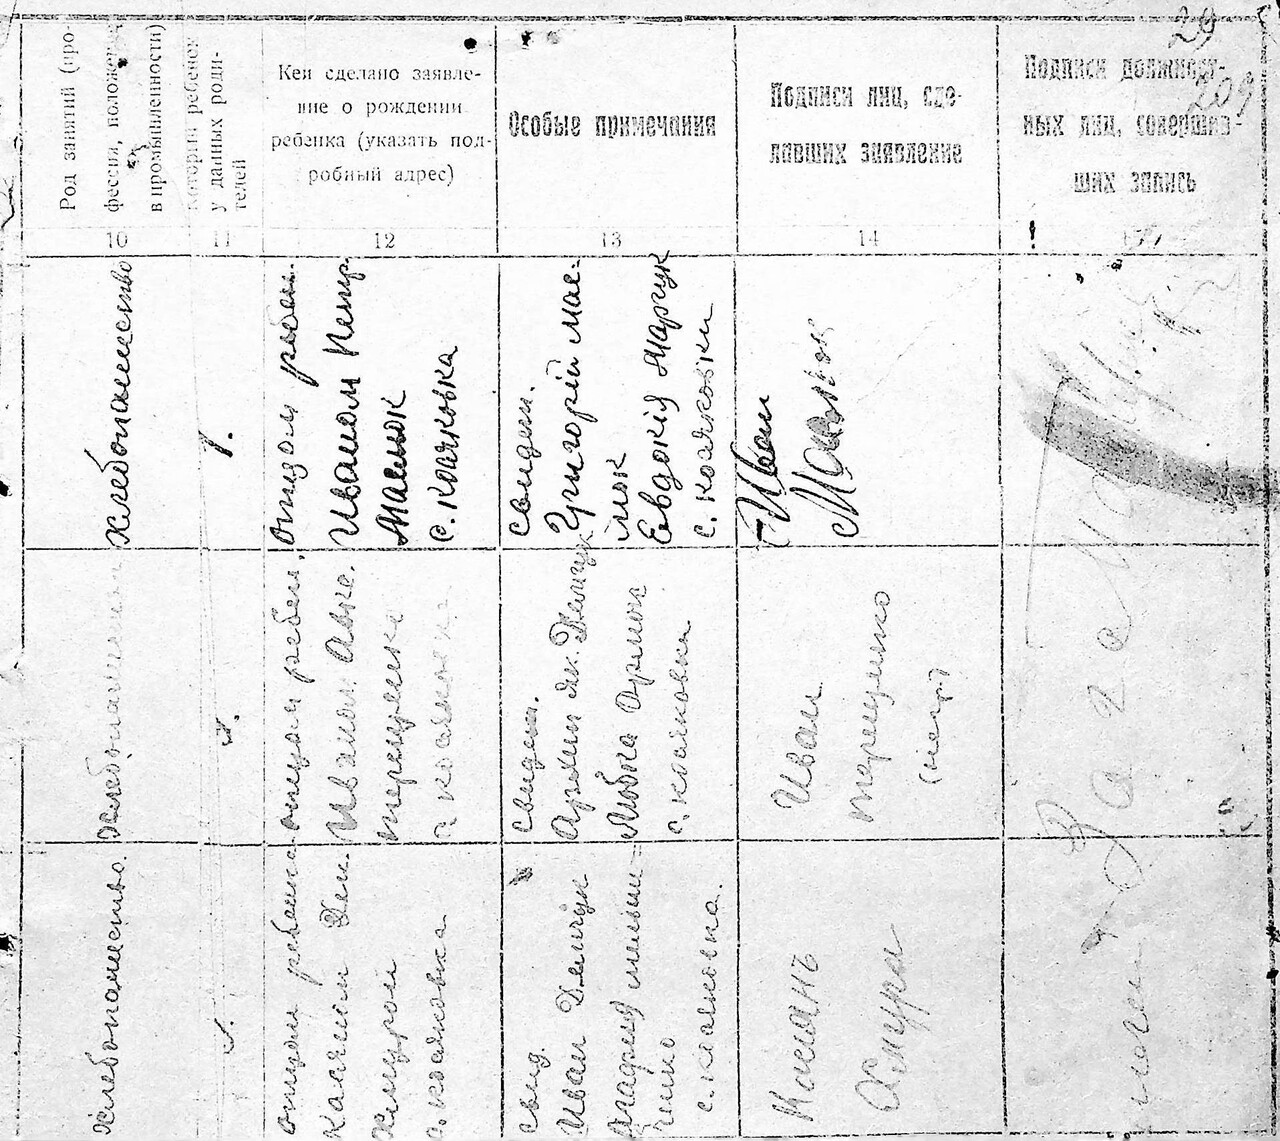 29
209
Род занятий (про-
фессия, положен.
в промышленности)
который ребенок
у данных роди-
телей
Кем сделано заявле-
ние о рождении
ребенка (указать под-
робный адрес)
Особые примечания
Подписи лиц, сде-
лавших заявление
Подписи должност-
ных лиц, совершив-
ших запись
10
11
12
13
14
Хлебопашество
1.
отцом ребен.
Иваном Петр.
Маслюк
с. Косяковка
свидет.
Григорій Мас-
люк
Евдокія Марчук
с. Косяковки
Иван
Маслюк
отцом ребен.
Иваном
Терещенко
с Косяковка
свидет.
Любка
с. Косяковка
Иван
Терещенко
(негр.)
Хлебопашество.
отцом ребенка
Касяном Дем.
Хмурой
с. Косяковка
свид.
Иван Демчук
Агафия Мельни-
ченко
с. Косяковка.
Касиянъ
Хмура